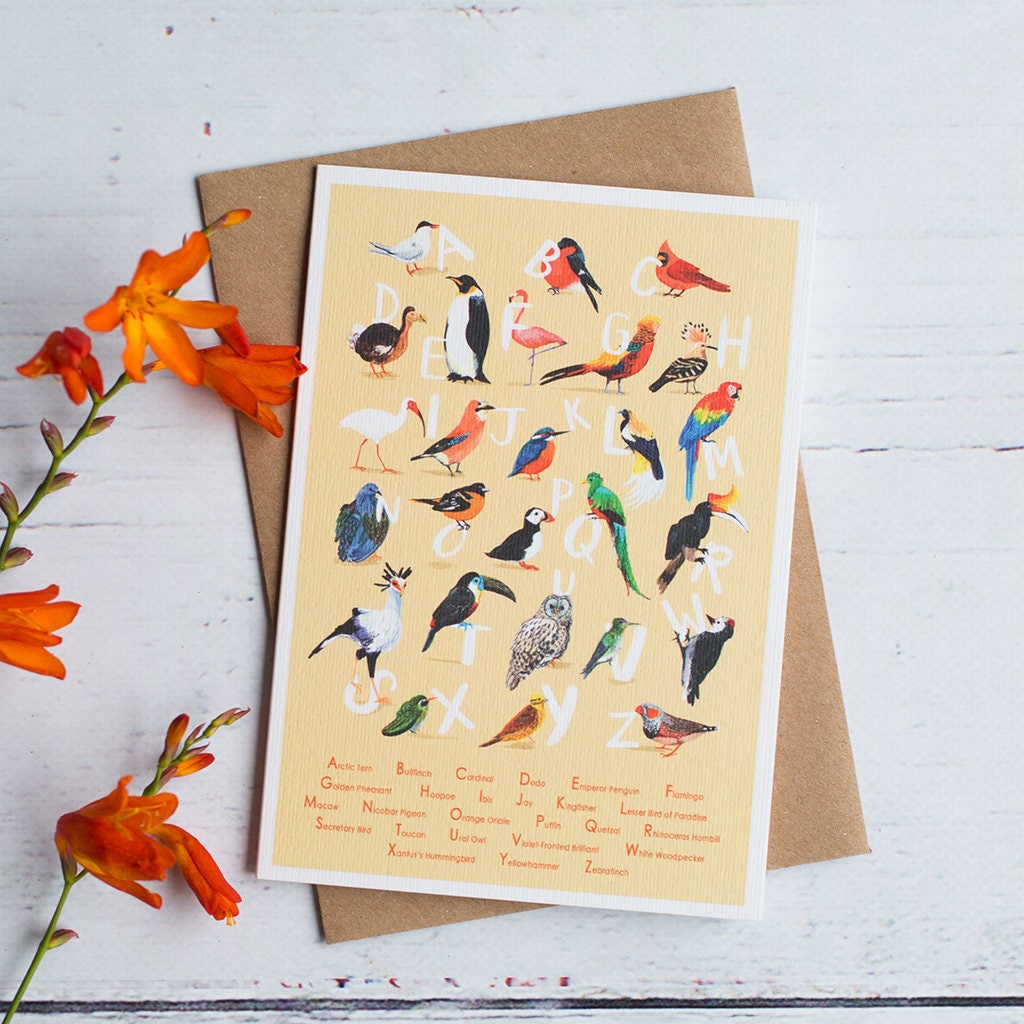 A B C
D E F G H
I J K L M
N O P Q R
S T U V W
X Y Z
Arctic Tern Bullfinch Cardinal Dodo Emperor Penguin Flamingo
Golden Pheasant Hoopoe Ibis Jay Kingfisher Lesser Bird of Paradise
Macaw Nicobar Pigeon Orange Oriole Puffin Quetzal Rhinoceros Hornbill
Secretary Bird Toucan Ural Owl Violet-Fronted Brilliant White Woodpecker
Xantus's Hummingbird Yellowhammer Zebrafinch